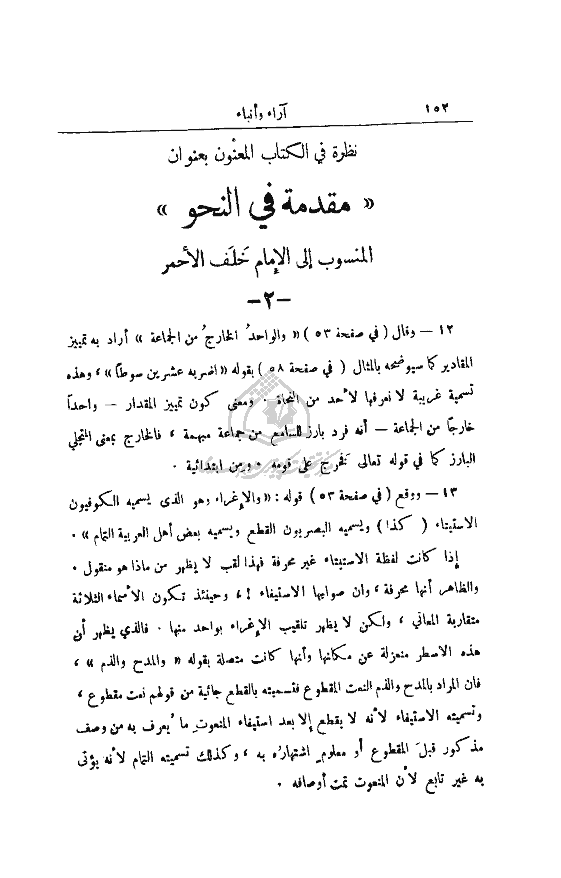 ١٥٢
آراء وأنباء
نظرة في الكتاب المعنون بعنوان
« مقدمة في النحو »
المنسوب إلى الإمام خَلَف الأحمر
-٢-
١٢ — وقال ( في صفحة ٥٣ ) « والواحدُ الخارجُ من الجماعة » أراد به تمييز
المقادير كما سيوضحه بالمثال ( في صفحة ٥٨ ) بقوله « اضربه عشرين سوطاً » ، وهذه
تسمية غريبة لا نعرفها لأحد من النحاة . ومعنى كون تمييز المقدار — واحداً
خارجاً من الجماعة — أنه فرد بارز للسامع من جماعة مبهمة ، فالخارج بمعنى المتجلي
البارز كما في قوله تعالى فخرج على قومه . ومن ابتدائية .
١٣ — ووقع ( في صفحة ٥٣ ) قوله : « والإغراء وهو الذي يسميه الكوفيون
الاستيتاء ( كذا ) ويسميه البصريون القطع ويسميه بعض أهل العربية التمام » .
إذا كانت لفظة الاستيتاء غير محرفة فهذا لقب لا يظهر من ماذا هو منقول .
والظاهر أنها محرفة ، وان صوابها الاستيفاء !، وحينئذ تكون الأسماء الثلاثة
متقاربة المعاني ، ولكن لا يظهر تلقيب الإغراء بواحد منها . فالذي يظهر أن
هذه الاسطر منعزلة عن مكانها وأنها كانت متصلة بقوله « والمدح والذم » ،
فان المراد بالمدح والذم النعت المقطوع فتسميته بالقطع جائية من قولهم نعت مقطوع ،
وتسميته الاستيفاء لأنه لا يقطع إلا بعد استيفاء المنعوت ما يُعرف به من وصف
مذكور قبلَ المقطوع أو معلومٍ اشتهارُه به ، وكذلك تسميته التمام لأنه يؤتى
به غير تابع لأن المنعوت تمت أوصافه .